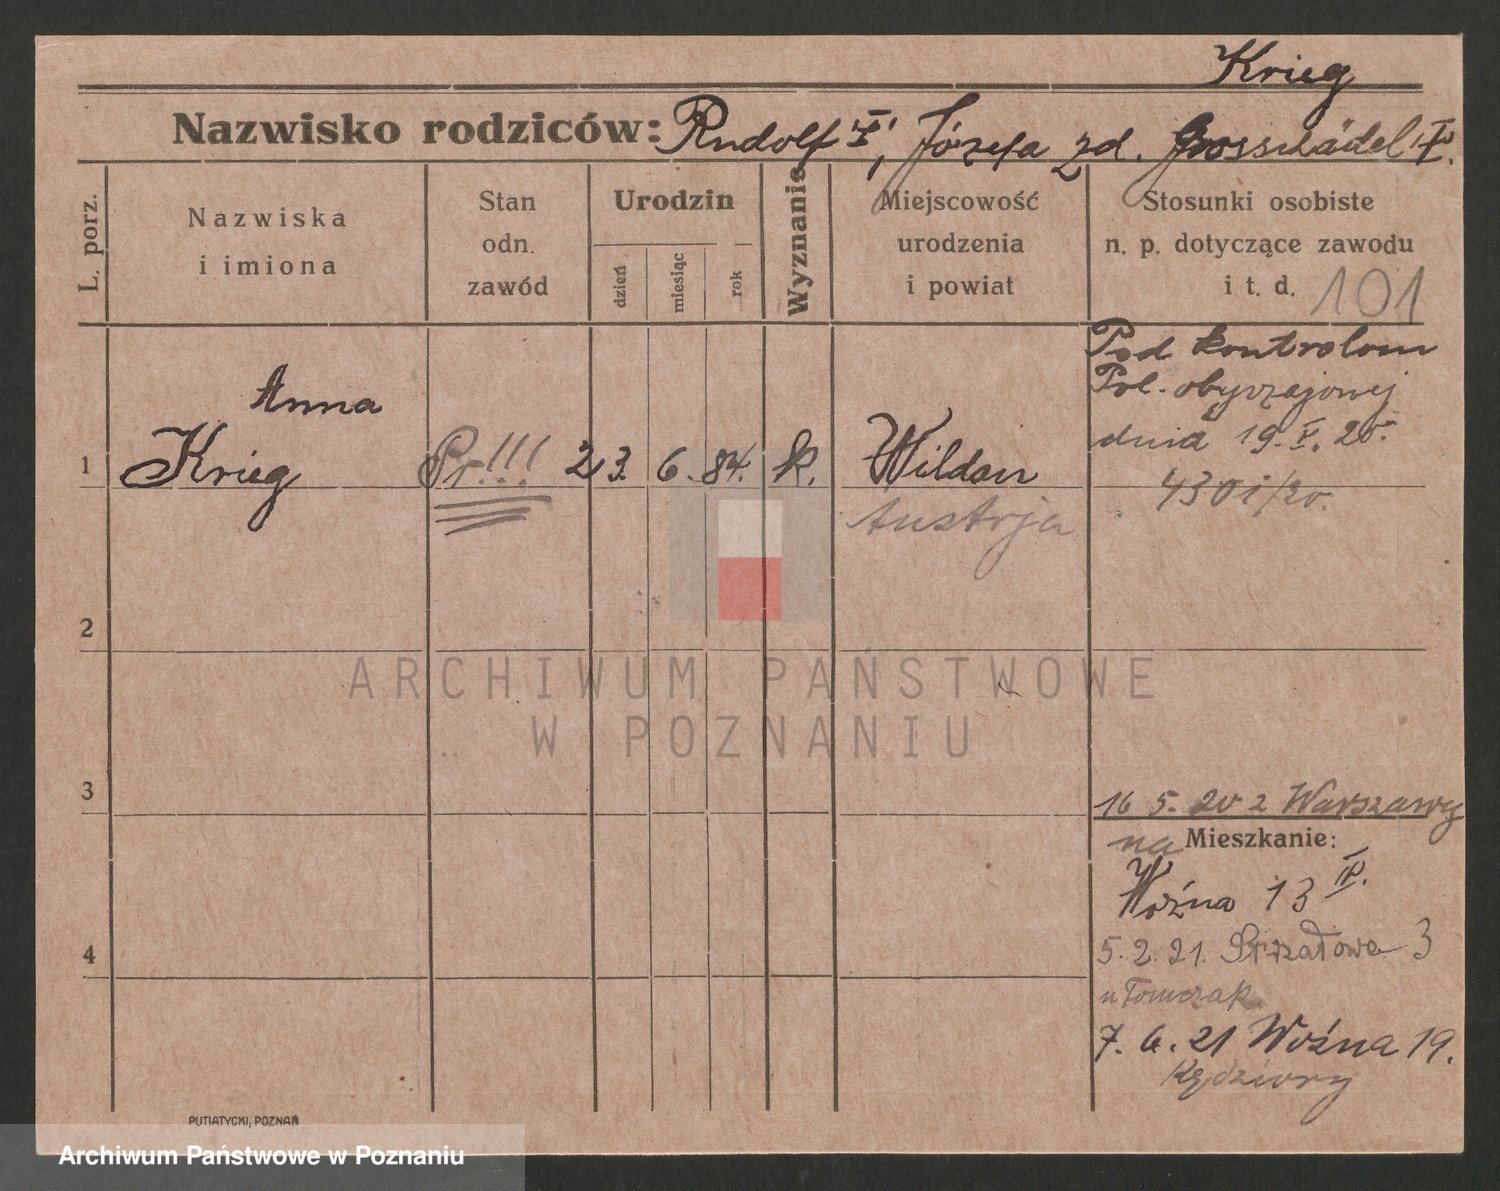 Krieg
Nazwisko rodziców: Rudolf †, Józefa zd. †.
L. porz.
Nazwiska
i imiona
Stan
odn.
zawód
Urodzin
dzień
miesiąc
rok
Wyznanie
Miejscowość
urodzenia
i powiat
Stosunki osobiste
n. p. dotyczące zawodu
i t. d. 101
1
Anna
Krieg
Pr!!!
23. 6. 84. k.
Wildon
Austrja
Pod kontrolom
Pol. obyczajowej
dnia 19. V. 20.
430i/20.
2
3
4
16 5. 20 z Warszawy
na Mieszkanie:
Woźna 13
5. 2. 21. Strzałowa 3
u Tomczak
7. 6. 21 Woźna 19.
Kędziory
PUTIATYCKI, POZNAŃ
ARCHIWUM PAŃSTWOWE
W POZNANIU
Archiwum Państwowe w Poznaniu